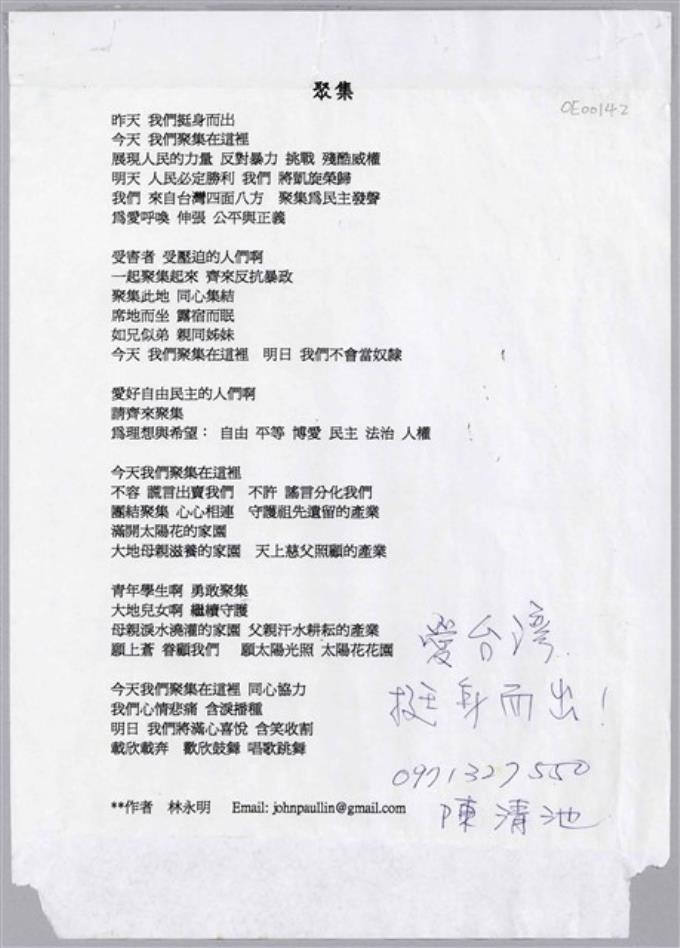 聚集
OE00142
昨天 我們挺身而出
今天 我們聚集在這裡
展現人民的力量 反對暴力 挑戰 殘酷威權
明天 人民必定勝利 我們 將凱旋榮歸
我們 來自台灣四面八方 聚集爲民主發聲
爲愛呼喚 伸張 公平與正義
受害者 受壓迫的人們啊
一起聚集起來 齊來反抗暴政
聚集此地 同心集結
席地而坐 露宿而眠
如兄似弟 親同姊妹
今天 我們聚集在這裡 明日 我們不會當奴隸
愛好自由民主的人們啊
請齊來聚集
爲理想與希望： 自由 平等 博愛 民主 法治 人權
今天我們聚集在這裡
不容 謊言出賣我們 不許 謠言分化我們
團結聚集 心心相連 守護祖先遺留的產業
滿開太陽花的家園
大地母親滋養的家園 天上慈父照顧的產業
青年學生啊 勇敢聚集
大地兒女啊 繼續守護
母親淚水澆灌的家園 父親汗水耕耘的產業
願上蒼 眷顧我們 願太陽光照 太陽花花園
今天我們聚集在這裡 同心協力
我們心情悲痛 含淚播種
明日 我們將滿心喜悅 含笑收割
載欣載奔 歡欣鼓舞 唱歌跳舞
**作者 林永明 Email: johnpaullin@gmail.com
愛台湾
挺身而出！
0971327550
陳清池